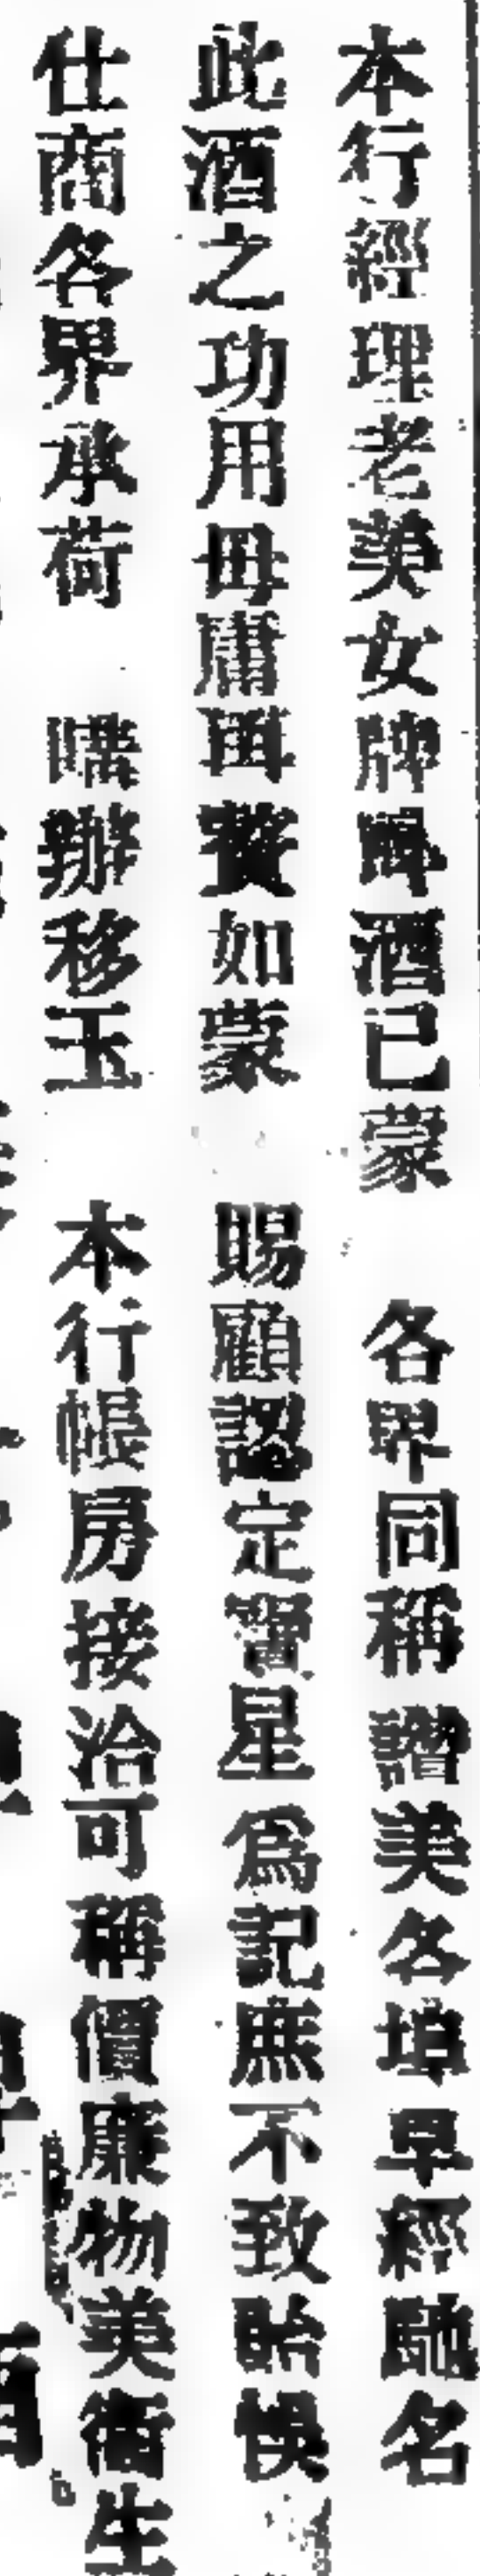 本行經理老美女牌啤酒已蒙　各界同稱讚美各埠早經馳名
此酒之功用毋庸再贅如蒙　賜顧認定雙星為記庶不致貽悞
仕商各界承荷　購辦移玉　本行帳房接洽可稱價廉物美衛生